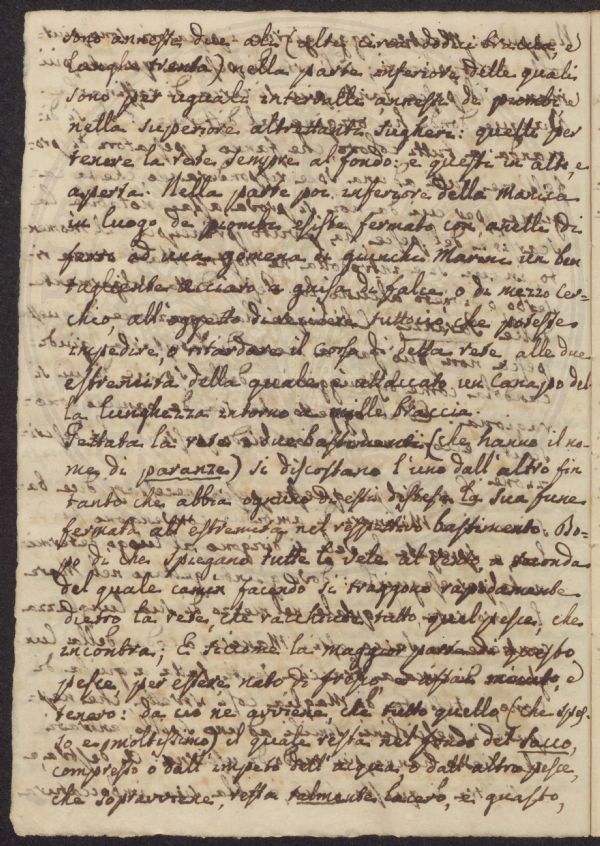 sono annesse due ali (alte circa dodici braccia, e
lunghe trenta) nella parte inferiore delle quali
sono per uguali intervalli annessi de' piombi e
nella superiore altrettanti sugheri: quelli per
tenere la rete sempre al fondo; e questi in alto, e
aperta. Nella parte poi inferiore della Manica
in luogo de' piombi esiste fermato con anelli di
ferro ad una gomena di giunchi Marini un ben
tagliente acciaro a guisa di falce, o di mezzo cer-
chio, all'oggetto di recidere tuttociò, che potesse
impedire, o ritardare il corso di detta rete, alle due
estremità della quale è attaccato un Canapo del-
la lunghezza intorno a mille braccia.
Gettata la rete i due bastimenti (che hanno il no-
me di paranze) si discostano l'uno dall'altro fin
tanto che abbia ognuno di essi distesa la sua fune
fermata all'estremità nel rispettivo bastimento. Do-
po di che spiegano tutte le vele al vento, a seconda
del quale camin facendo si traggono rapidamente
dietro la rete, che racchiude tutto quel pesce, che
incontra; E siccome la maggior parte di questo
pesce, per essere nato di fresco e assai minuto, e
tenero: da ciò ne avviene, che tutto quello (che spes-
so è moltissimo) il quale resta nel fondo del sacco,
compresso o dall'impeto dell'acqua, o dall'altro pesce,
che sopravviene, resta talmente lacero, e guasto,